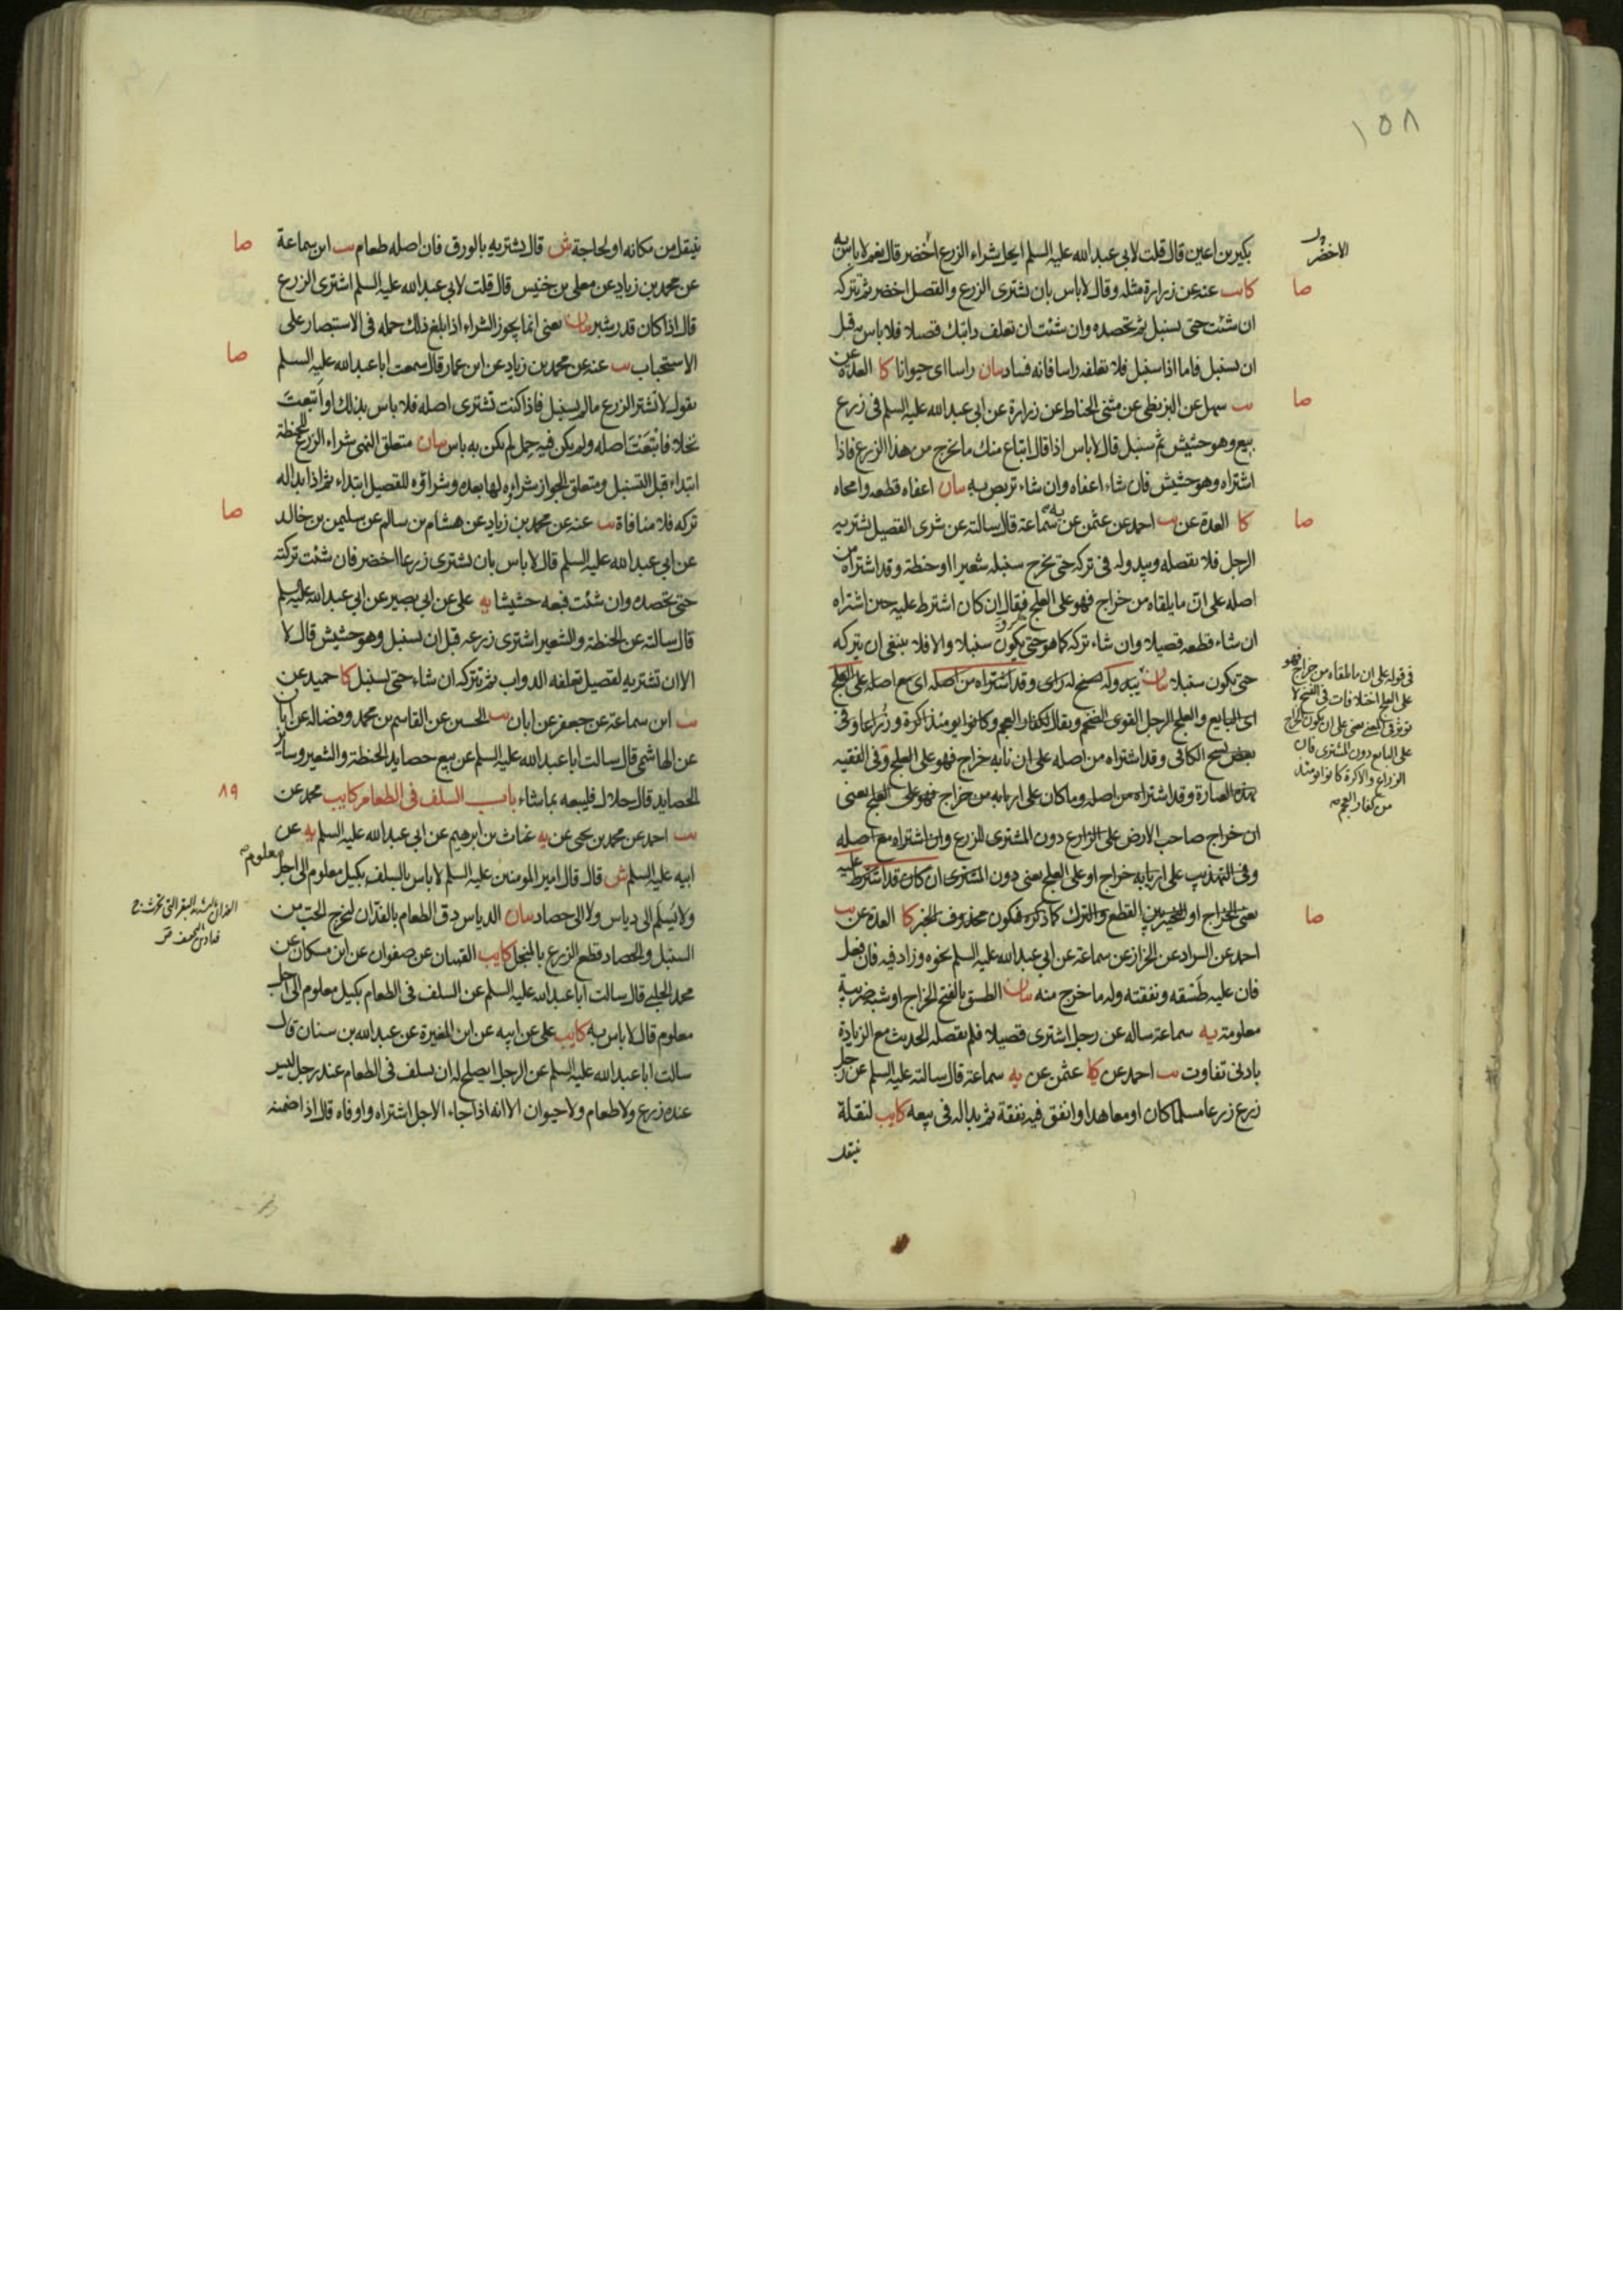 ١٥٨
بكير بن اعين قال قلت لابي عبد الله عليه السلم ايحل شراء الزرع اخضر قال نعم لا باس به
الاخضر
صا
كا يب عنه عن زرارة مثله وقال لا باس بان تشترى الزرع والقصل اخضر ثم تتركه
ان شئت حتى يسنبل ثم تحصده وان شئت ان تعلف دابتك قصيلا فلا باس به قبل
ان يسنبل فاما اذا سنبل فلا تعلفه راسا فانه فساد بيان راسا اى حيوانا كا العدة عن
صا
يب سهل عن البزنطى عن مثنى الحناط عن زرارة عن ابى عبد الله عليه السلم فى زرع
بيع وهو حشيش ثم سنبل قال لا باس اذا قال ابتاع منك ما يخرج من هذا الزرع فاذا
اشتراه وهو حشيش فان شاء اعفاه وان شاء تربص به بيان اعفاه قطعه وامحاه
صا
كا العدة عن يب احمد عن عثمن عن يه سماعة قال سالته عن شرى القصيل يشتريه
الرجل فلا يقصله ويبدو له فى تركه حتى يخرج سنبله شعيرا او حنطة وقد اشتراه من
اصله على ان ما يلقاه من خراج فهو على العلج فقال ان كان اشترط عليه حين اشتراه
ان شاء قطعه قصيلا وان شاء تركه كما هو حتى يكون سنبلا والا فلا ينبغى ان يتركه
حتى يكون سنبلا بيان يبدو له يسنح له راى وقد اشتراه من اصله اى مع اصله على العلج
اى البايع والعلج الرجل القوى الضخم ويقال للكفار العجم وكانوا يومئذ اكرة وزراعا وفى
بعض نسخ الكافى وقد اشتراه من اصله على ان نابه خراج فهو على العلج وفى الفقيه
بهذه العبارة وقد اشتراه من اصله وما كان على اربابه من خراج فهو على العلج يعنى
ان خراج صاحب الارض على الزارع دون المشترى للزرع وان اشتراه مع اصله
وفى التهذيب على اربابه خراج او على العلج يعنى دون المشترى ان كان قد اشترط عليه
فى قوله على ان ما يلقاه من خراج فهو
على العلج اختلافات فى النسخ لا
توثر فى المعنى يعنى على ان يكون الخراج
على البايع دون المشترى فان
الزراع والاكرة كانوا يومئذ
من كفار العجم
صا
يعنى الخراج او التخيير بين القطع والترك كما ذكره فيكون محذوف الخبر كا العدة عن يب
احمد عن السراد عن الخزاز عن سماعة عن ابى عبد الله عليه السلم نحوه وزاد فيه فان فعل
فان عليه طسقه ونفقته وله ما خرج منه بيان الطسق بالفتح الخراج او شبه ضريبة
معلومة يه سماعة ساله عن رجل اشترى قصيلا فلم يقصله الحديث مع الزيادة
بادنى تفاوت يب احمد عن كا عثمن عن يه سماعة قال سالته عليه السلم عن رجل
زرع زرعا مسلما كان او معاهدا وانفق فيه نفقة ثم بدا له فى بيعه كا يب لنقلة
ينتقل
صا
ينتقل من مكانه او لحاجة ش قال يشتريه بالورق فان اصله طعام يب ابن سماعة
عن محمد بن زياد عن معلى بن خنيس قال قلت لابى عبد الله عليه السلم اشترى الزرع
قال اذا كان قدر شبر بيان يعنى انما يجوز الشراء اذا بلغ ذلك حمله فى الاستبصار على
صا
الاستحباب يب عنه عن محمد بن زياد عن ابن عمار قال سمعت ابا عبد الله عليه السلم
يقول لا تشتر الزرع ما لم يسنبل فاذا كنت تشترى اصله فلا باس بذلك او ابتعت
نخلا فابتعت اصله ولم يكن فيه حمل لم يكن به باس بيان متعلق النهى شراء الزرع للحنطة
ابتداء قبل التسنبل ومتعلق الجواز شراءه لها بعده وشراؤه للقصيل ابتداء ثم اذا بدا له
صا
تركه فلا منافاة يب عنه عن محمد بن زياد عن هشام بن سالم عن سليمن بن خالد
عن ابى عبد الله عليه السلم قال لا باس بان تشترى زرعا اخضر فان شئت تركته
حتى تحصده وان شئت فبعه حشيشا يه على عن ابى بصير عن ابى عبد الله عليه السلم
قال سالته عن الحنطة والشعير اشترى زرعه قبل ان يسنبل وهو حشيش قال لا
الا ان تشتريه لقصيل تعلفه الدواب ثم تتركه ان شاء حتى يسنبل كا حميد عن
يب ابن سماعة عن جعفر عن ابان يب الحسين عن القاسم بن محمد وفضاله عن ابان
عن الهاشمى قال سالت ابا عبد الله عليه السلم عن بيع حصايد الحنطة والشعير وساير
٨٩
الحصايد قال حلال فليبعه بما شاء باب السلف فى الطعام كا يب محمد عن
يب احمد عن محمد بن يحيى عن يه غياث بن ابرهيم عن ابى عبد الله عليه السلم يه عن
ابيه عليه السلم ش قال قال امير المومنين عليه السلم لا باس بالسلف بكيل معلوم الى اجل معلوم
ولا يسلم الى دياس ولا الى حصاد بيان الدياس دق الطعام بالفدان ليخرج الحب من
السنبل والحصاد قطع الزرع بالمنجل كا يب القميان عن صفوان عن ابن مسكان عن
محمد الحلبى قال سالت ابا عبد الله عليه السلم عن السلف فى الطعام بكيل معلوم الى اجل
معلوم قال لا باس به كا يب على عن ابيه عن ابن المغيرة عن عبد الله بن سنان قال
سالت ابا عبد الله عليه السلم عن الرجل ايصلح له ان يسلف فى الطعام عند رجل ليس
عنده زرع ولا طعام ولا حيوان الا انه اذا جاء الاجل اشتراه واوفاه قال اذا ضمنه